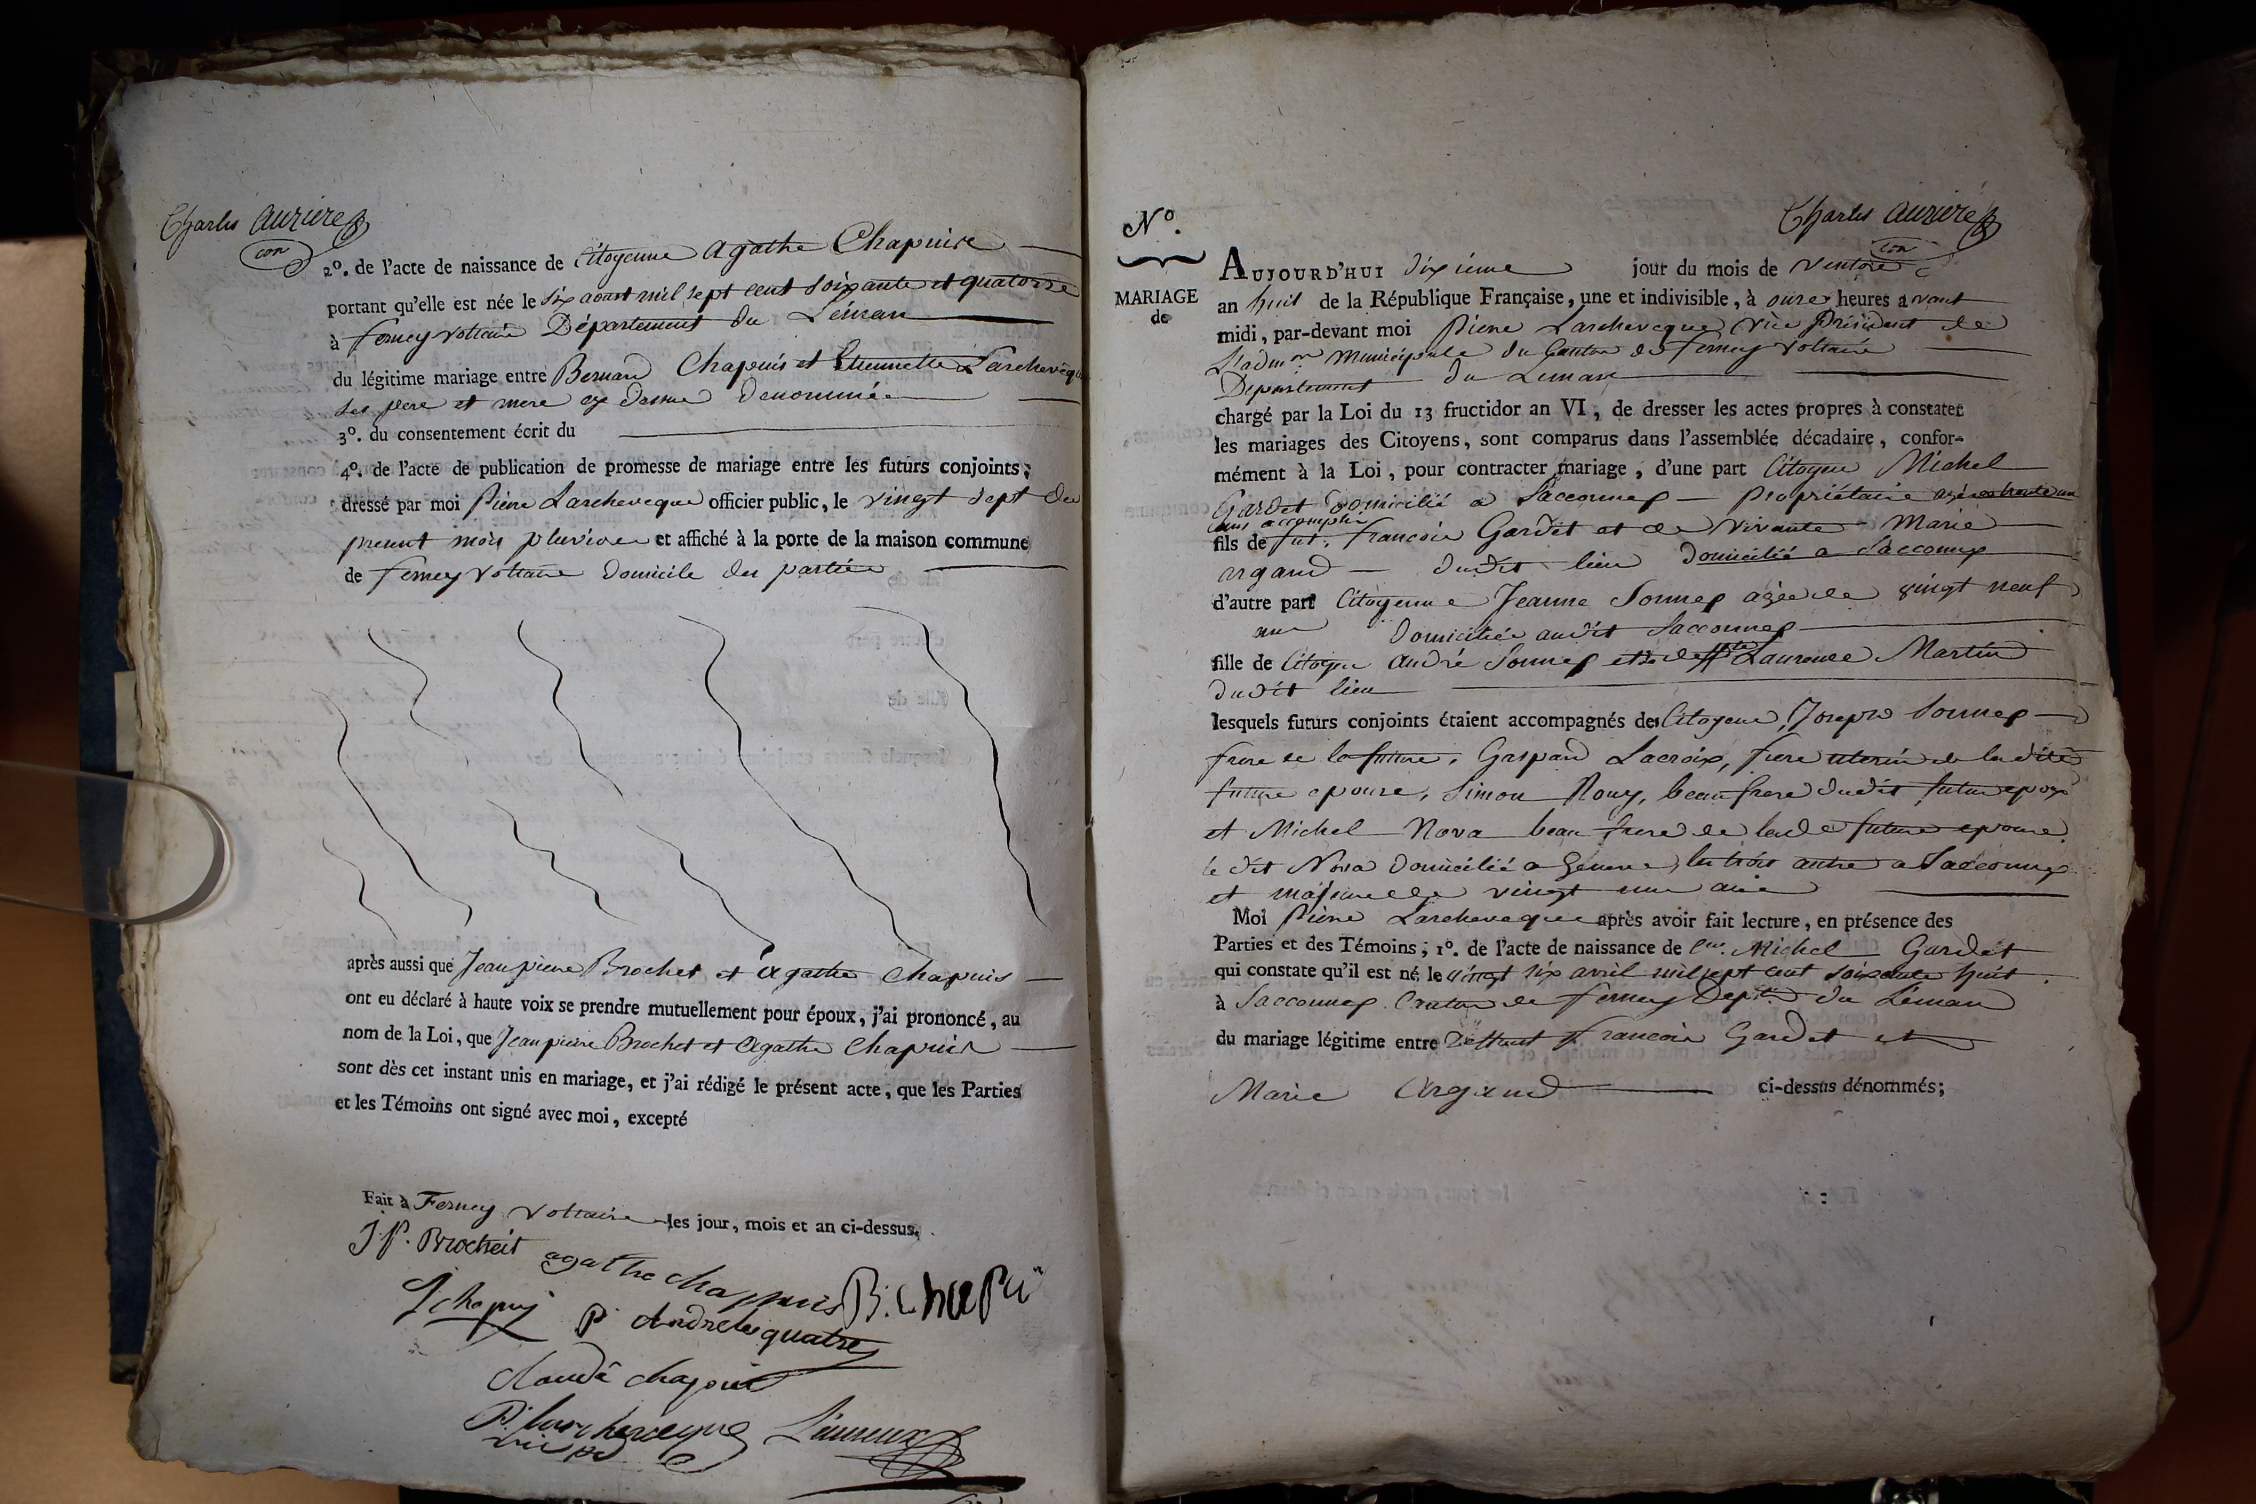 Charles Auzière
con
2º. de l'acte de naissance de Citoyenne Agathe Chapuise
portant qu'elle est née le Six aoust mil sept cent soixante et quatorze
à Ferney Voltaire Département du Léman
du légitime mariage entre Bernard Chapuis et Etiennette Larcheveque
Ses pere et mere cy dessus denommée
3º. du consentement écrit du
4º. de l'acte de publication de promesse de mariage entre les futurs conjoints;
dressé par moi Pierre Larcheveque officier public, le vingt sept du
present mois pluviose et affiché à la porte de la maison commune
de Ferney Voltaire domicile des parties
après aussi que Jean pierre Brochet et Agathe Chapuis
ont eu déclaré à haute voix se prendre mutuellement pour époux, j'ai prononcé, au
nom de la Loi, que Jean pierre Brochet et Agathe Chapuis
sont dès cet instant unis en mariage, et j'ai rédigé le présent acte, que les Parties
et les Témoins ont signé avec moi, excepté
Fait à Ferney Voltaire les jour, mois et an ci-dessus.
J. P. Brocheit agathe chappuis B. chapui
J chapuij P Andre les quatre
Claude chapuit
P. Larcheveque
vice pd
Charles Auzière
con
Nº.
MARIAGE
de
AUJOURD'HUI dixieme jour du mois de ventose
an huit de la République Française, une et indivisible, à onze heures avant
midi, par-devant moi Pierre Larcheveque vice président de
L'admon Municipale du Canton de Ferney Voltaire
Departement du Leman
chargé par la Loi du 13 fructidor an VI, de dresser les actes propres à constater
les mariages des Citoyens, sont comparus dans l'assemblée décadaire, confor-
mément à la Loi, pour contracter mariage, d'une part Citoyen Michel
Gardet domicilié a Sacconnex propriétaire agé de trente un
ans accomplie
fils de fut. francois Gardet et de vivante Marie
argand dudit lieu domicilié a Sacconnex
d'autre part Citoyenne Jeanne Sonnex agée de vingt neuf
ans domiciliée audit Sacconnex
fille de Citoyen andré Sonnex et de Laurence Martin
dudit lieu
lesquels futurs conjoints étaient accompagnés des Citoyens, Joseph Sonnex
frere de la future, Gaspard Lacroix, frere uterin de la dite
future epouse, Simon Rouy, beau frere dudit futur epoux
et Michel Nova beau frere de lade future epouse
le dit Nova domicilié a Geneve, les trois autre a Sacconnex
et majeur de vingt un ans
Moi Pierre Larcheveque après avoir fait lecture, en présence des
Parties et des Témoins; 1º. de l'acte de naissance de Cen. Michel Gardet
qui constate qu'il est né le vingt six avril mil sept cent soixante huit
à Sacconnex Canton de Ferney Dept. du Léman
du mariage légitime entre Deffunt francois Gardet et
Marie Argand ci-dessus dénommés;